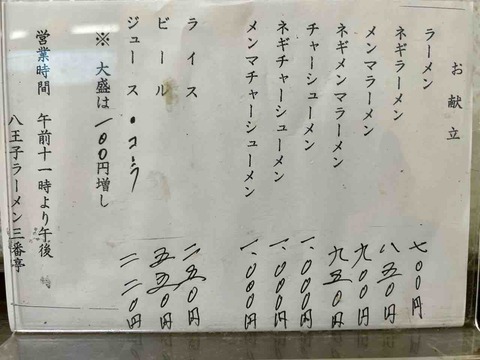 お献立
ラーメン 七〇〇円
ネギラーメン 八五〇円
メンマラーメン 九〇〇円
ネギメンマラーメン 九五〇円
チャーシューメン 一、〇〇〇円
ネギチャーシューメン 一、〇〇〇円
メンマチャーシューメン 一、〇〇〇円
ライス 二五〇円
ビール 五五〇円
ジュース・コーラ 二二〇円
※ 大盛は一〇〇円増し
営業時間 午前十一時より午後
八王子ラーメン三番亭